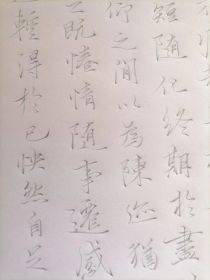 短随化终期於盡
仰之間以為陳迹猶
之既惓情随事遷感
得於已怏然自足